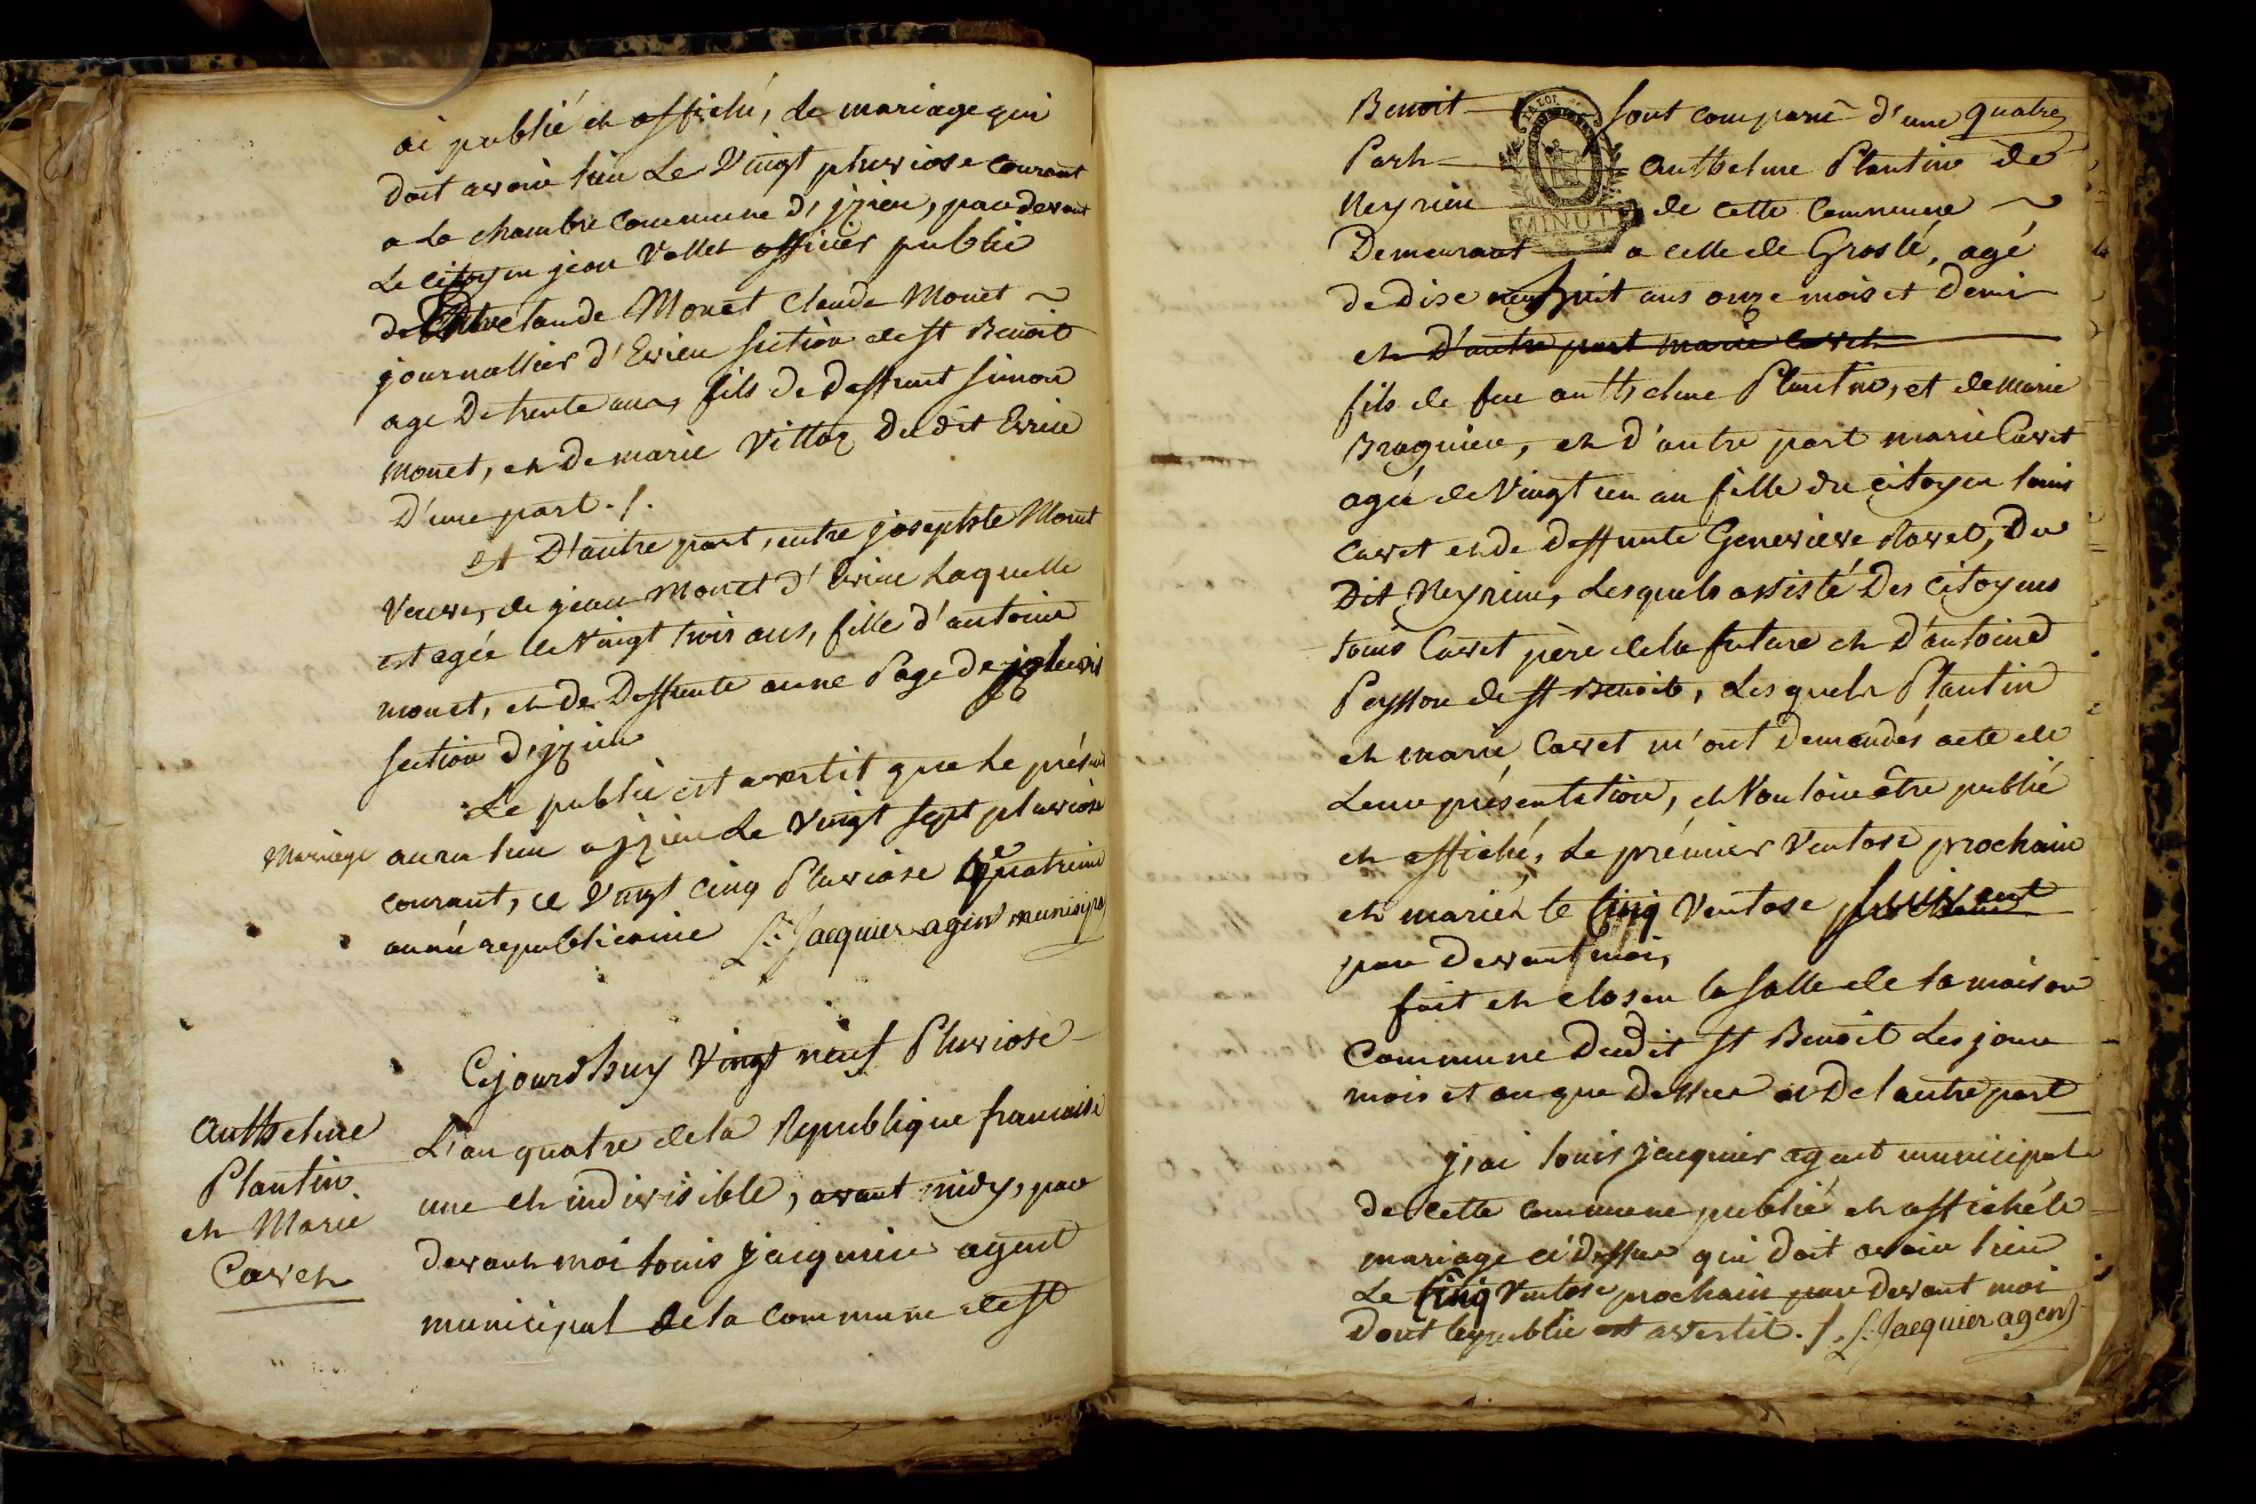 ai publié et affiché, le mariage qui
doit avoir lieu le Vingt pluviose courant
a la chambre commune d'jzieu, par devant
Le citoyen jean Vallet officier public
de Claude Monet Claude Monet ~
journallier d'Evieu section de st Benoit
age de trente ans, fils de deffunt simon
monet, et de marie Villoz du dit Evieu
d'une part ./.
et D'autre part, entre josephte Monet
Veuve, de jean Monet d'Evieu laquelle
est agée de Vingt trois ans, fille d'antoine
monet, et de Deffunte anne Page de
section d'jzieu
Le public est avertit que le présent
Mariage aura lieu a jzieu Le Vingt sept pluviose
courant, ce Vingt cinq Pluviose quatrieme
année republicaine L. Jacquier agent municipal
Cejourdhuy Vingt neuf Pluviose
L'an quatre de la Republique francaise
une et indivisible, avant midy, par
devant moi Louis jacquier agent
municipal de la commune de st
Anthelme
Plantin
et Marie
Cavet
Benoit sont comparu d'une quatre
Part Anthelme Plantin de
Neyrieu de cette Commune ~
Demeurant a celle de Groslé, agé
de dise huit ans onze mois et demi
et d'autre part marie Cavet
fils de feu anthelme Plantin, et de Marie
Braguieu, et d'autre part marie Cavet
agée de Vingt un an fille du citoyen Louis
Cavet et de deffunte Genevieve Navet, du
Dit Neyrieu, Lesquels assisté Des Citoyens
Louis Cavet père de la future et D'antoine
Peysson de st Benoit, Lesquels Plantin
et marie Cavet m'ont Demandés acte de
Leur présentation, et Vouloir être publié
et affiché, le prémier Ventose prochain
et mariés le Cinq Ventose suivant
par devant moi,
fait et clos en la salle de la maison
Commune Dudit st Benoit Les jour
mois et an que Dessus et De l'autre part
j,ai Louis jacquier agent municipal
de cette commune publié et affiché le
mariage ci dessus qui doit avoir lieu
Le Cinq Ventose prochain par devant moi
Dont le public est avertit ./. L. Jacquier agent
MINUTE
LA LOI